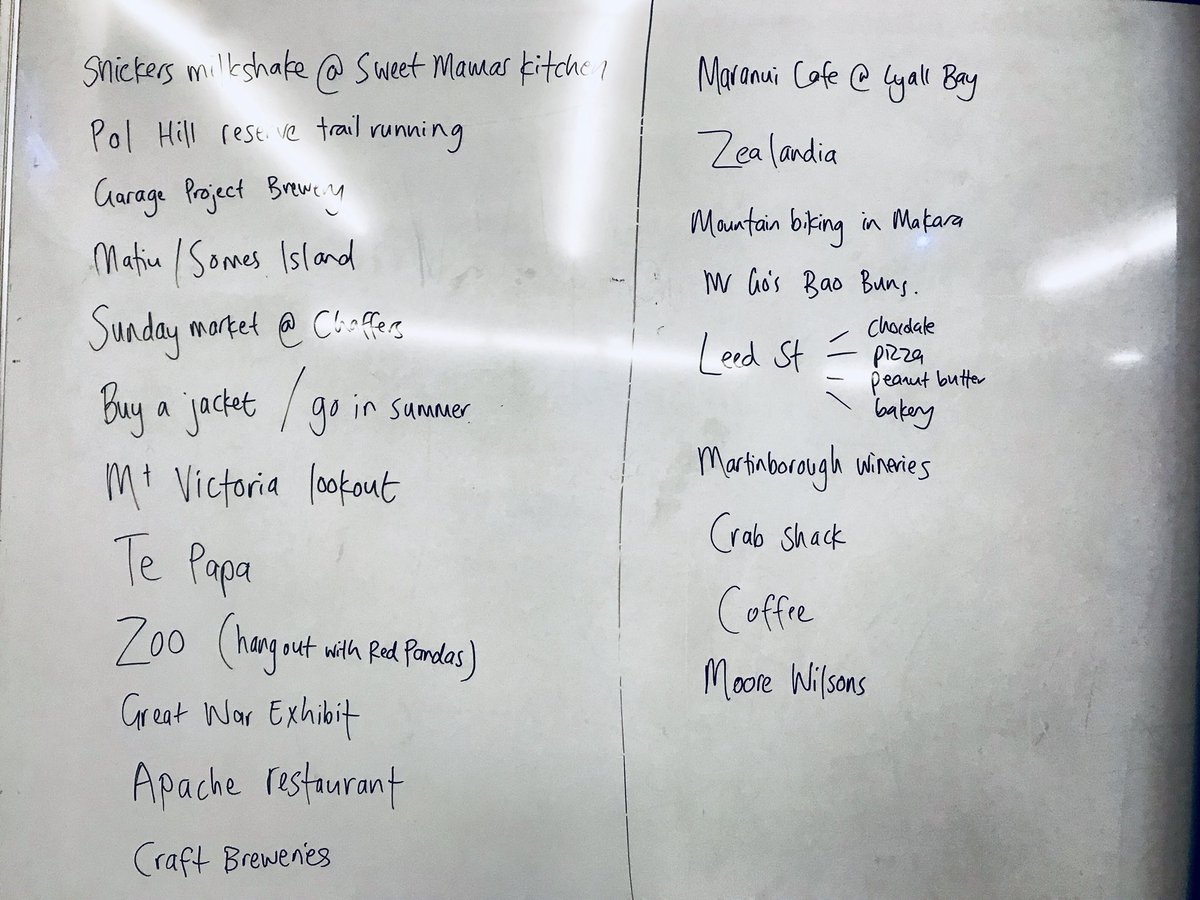 Snickers milkshake @ Sweet Mamas Kitchen
Pol Hill reserve trail running
Garage Project Brewery
Matiu / Somes Island
Sunday market @ Chaffers
Buy a jacket / go in summer.
Mt Victoria lookout
Te Papa
Zoo (hang out with Red Pandas)
Great War Exhibit
Apache restaurant
Craft Breweries
Maranui Cafe @ Lyall Bay
Zealandia
Mountain biking in Makara
Mr Go's Bao Buns.
Leed St
chocolate
pizza
peanut butter
bakery
Martinborough wineries
Crab shack
Coffee
Moore Wilsons